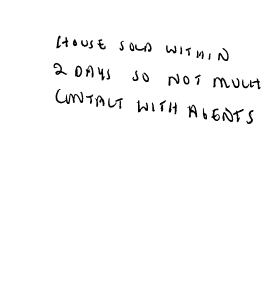 HOUSE SOLD WITHIN
2 DAYS SO NOT MUCH
CONTACT WITH AGENTS